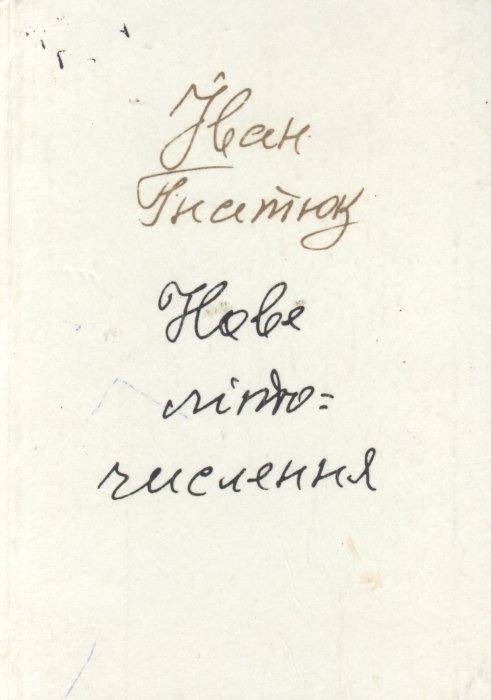 Іван
Гнатюк
Нове
літо=
числення